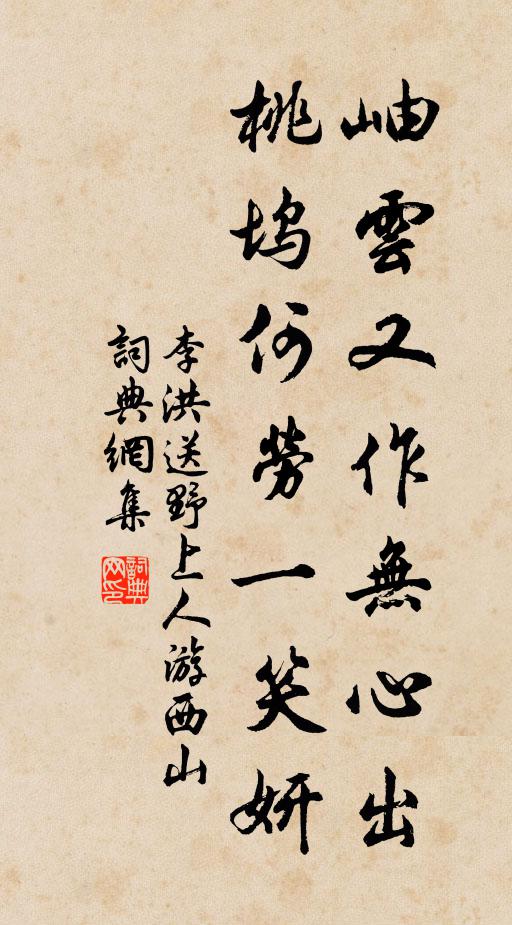 岫雲又作無心出
桃塢何勞一笑妍
李洪送野上人游西山
詞典網集
詞典网印